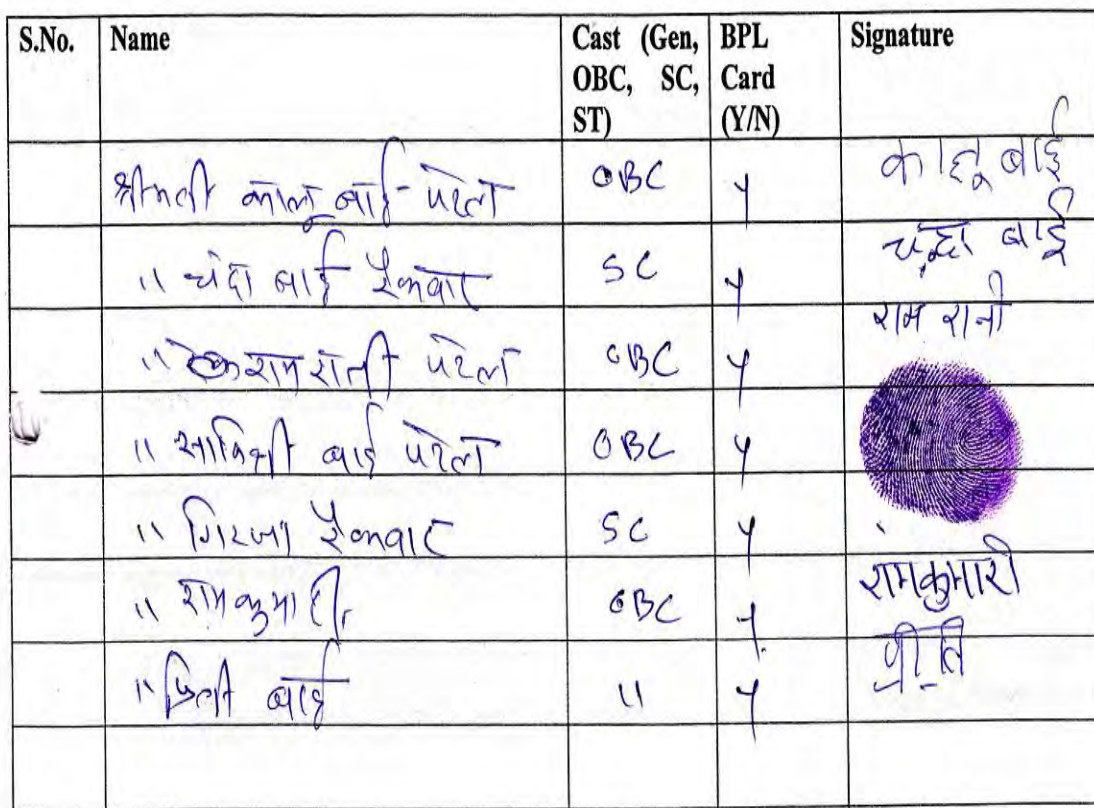 S.No. Name Cast (Gen, OBC, SC, ST) BPL Card (Y/N) Signature
श्रीमती कालू बाई पटेल OBC Y कालू बाई
" चंदा बाई रैकवार SC Y चन्दा बाई
" रामरानी पटेल OBC Y राम रानी
" सावित्री बाई पटेल OBC Y
" गिरजा रैकवार SC Y
" रामकुमारी OBC Y रामकुमारी
" प्रिती बाई " Y प्रीति